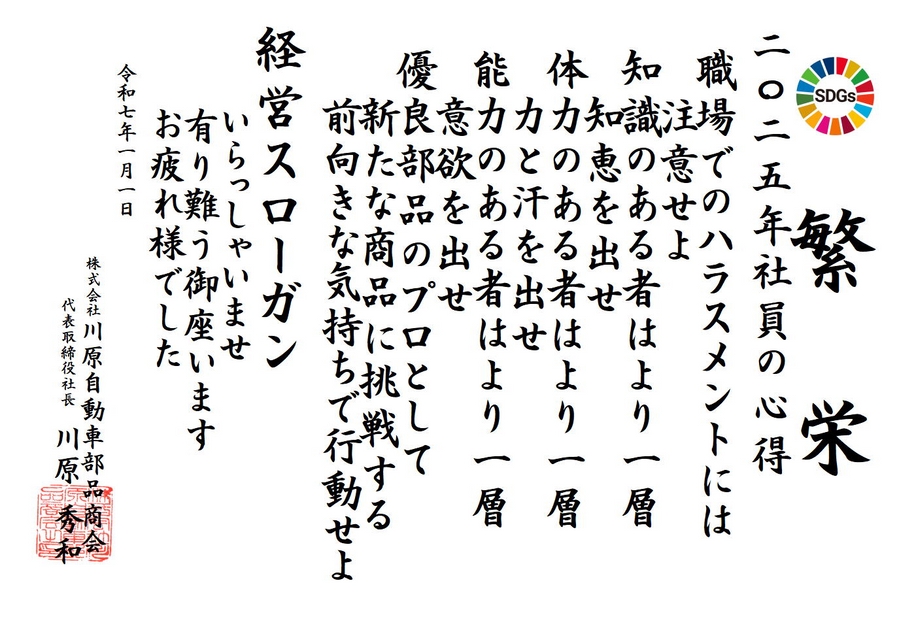 SDGs
繁栄
二〇二五年社員の心得
職場でのハラスメントには
注意せよ
知識のある者はより一層
知恵を出せ
体力のある者はより一層
力と汗を出せ
能力のある者はより一層
意欲を出せ
優良部品のプロとして
新たな商品に挑戦する
前向きな気持ちで行動せよ
経営スローガン
いらっしゃいませ
有り難う御座います
お疲れ様でした
令和七年一月一日
株式会社川原自動車部品商会
代表取締役社長 川原秀和